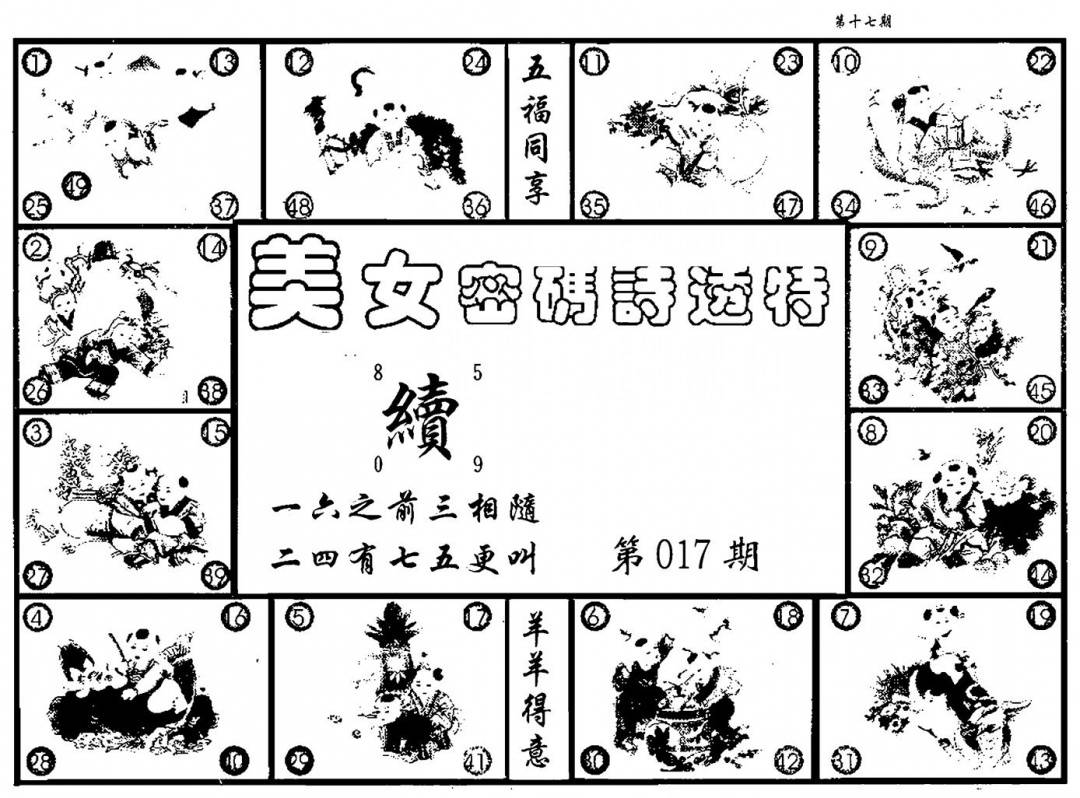 第十七期
① ⑬
㊾
㉕ ㊲
⑫ ㉔
㊽ ㊱
五福同享
⑪ ㉓
㉟ ㊼
⑩ ㉒
㉞ ㊻
② ⑭
㉖ ㊳
美女密碼詩透特
⑨ ㉑
㉝ ㊺
8 5
續
0 9
③ ⑮
㉗ ㊴
一六之前三相隨
二四有七五更叫
第017期
⑧ ⑳
㉜ ㊹
④ ⑯
㉘ ㊵
⑤ ⑰
㉙ ㊶
羊羊得意
⑥ ⑱
㉚ ㊷
⑦ ⑲
㉛ ㊸